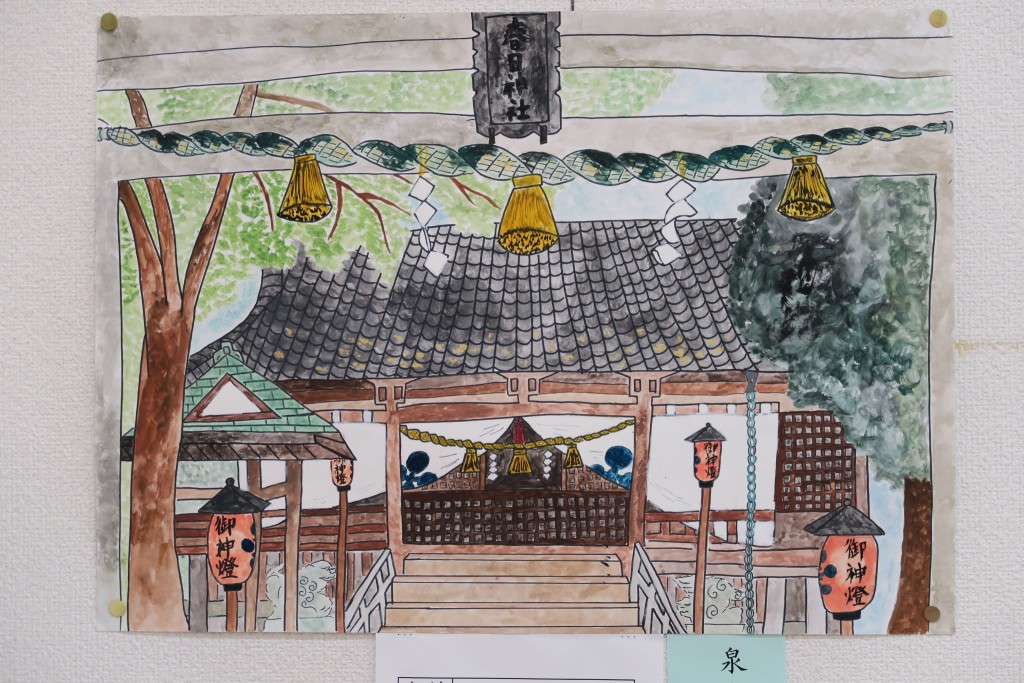 春日神社
御神燈
御神燈
御神燈
御神燈
泉